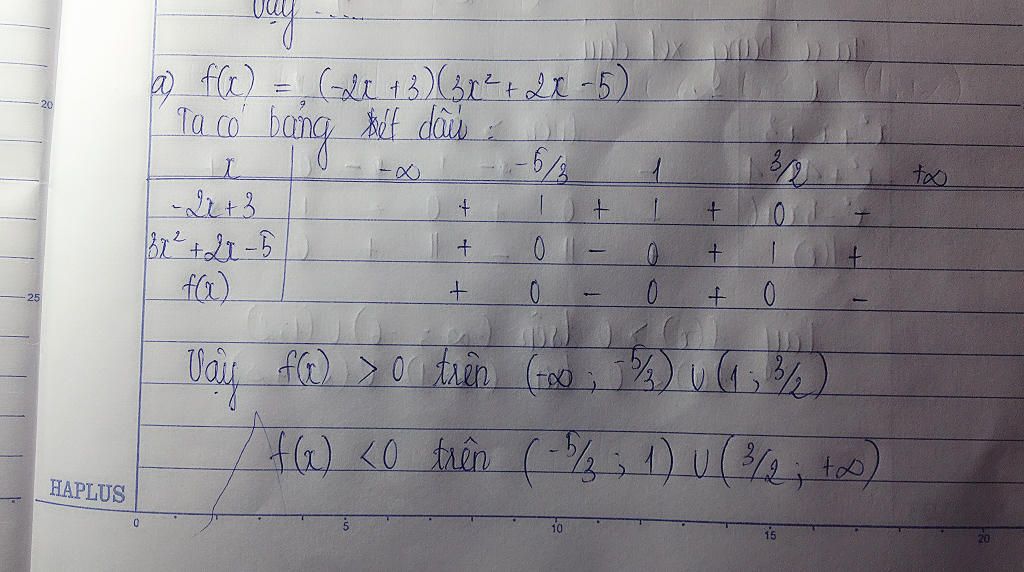 Vậy .....
a) f(x) = (-2x + 3)(3x² + 2x - 5)
20
Ta có bảng xét dấu :
x -∞ -5/3 1 3/2 +∞
-2x+3 + | + | + 0 -
3x² + 2x - 5 + 0 - 0 + | +
f(x) + 0 - 0 + 0 -
25
Vậy f(x) > 0 trên (-∞ ; -5/3) ∪ (1 ; 3/2)
f(x) < 0 trên (-5/3 ; 1) ∪ (3/2 ; +∞)
HAPLUS
0 5 10 15 20